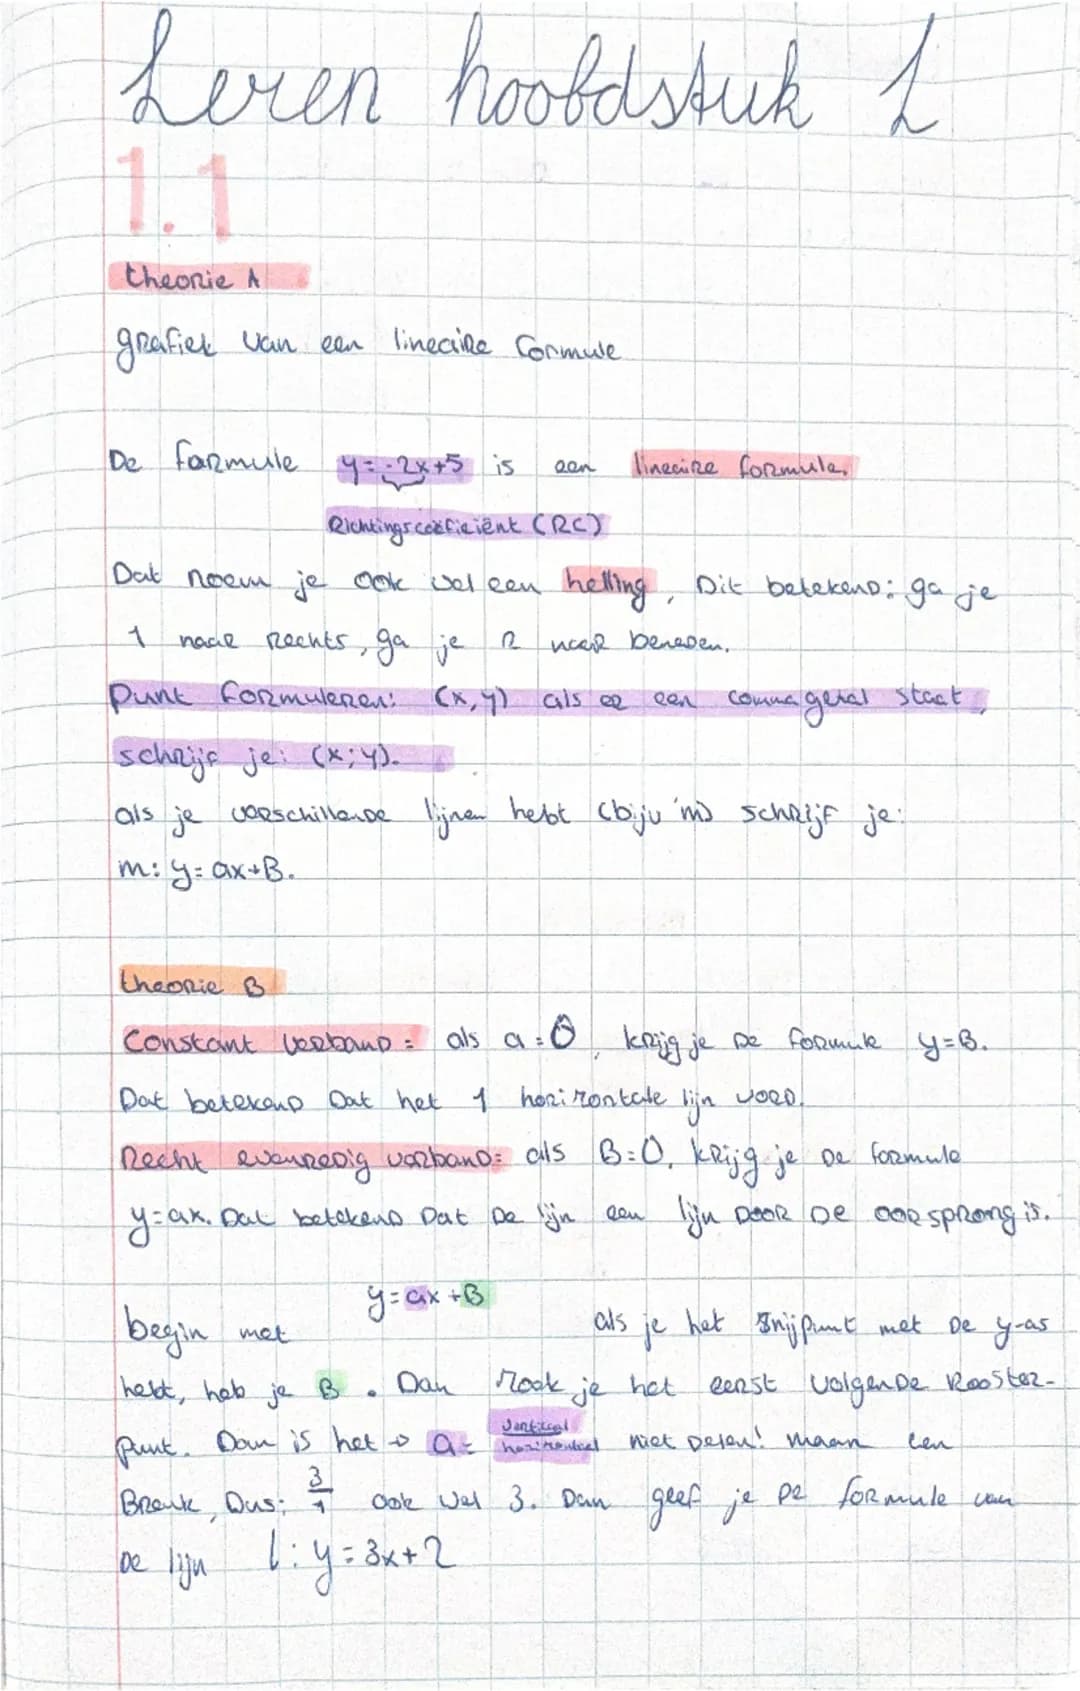 Leren hoofdstuk 1
1.1
theorie A
grafiek van een lineaire formule
De formule y=-2x+5 is een lineaire formule.
Richtingscoëfficiënt (RC)
Dat noem je ook wel een helling, Dit betekend: ga je
1 naar rechts, ga je 2 naar beneden.
Punt formuleren: (x,y) als er een commageral staat,
schrijf je: (x;y).
als je verschillende lijnen hebt (bijv 'm) schrijf je:
m: y=ax+B.
theorie B
Constant verband = als a=0, krijg je De formule y=B.
Dat betekend Dat het 1 horizontale lijn word.
Recht evenredig verband= als B=0, krijg je De formule
y=ax. Dat betekend Dat De lijn een lijn DOOR DE oorsprong is.
y=ax+B
begin met als je het snijpunt met De y-as
hebt, heb je B. Dan zoek je het eerst volgende Rooster-
punt. Dan is het → a= verticaal/horizontaal niet Delen! maar een
Breuk, Dus: 3/1 ook wel 3. Dan geef je De formule van
De lijn l: y=3x+2